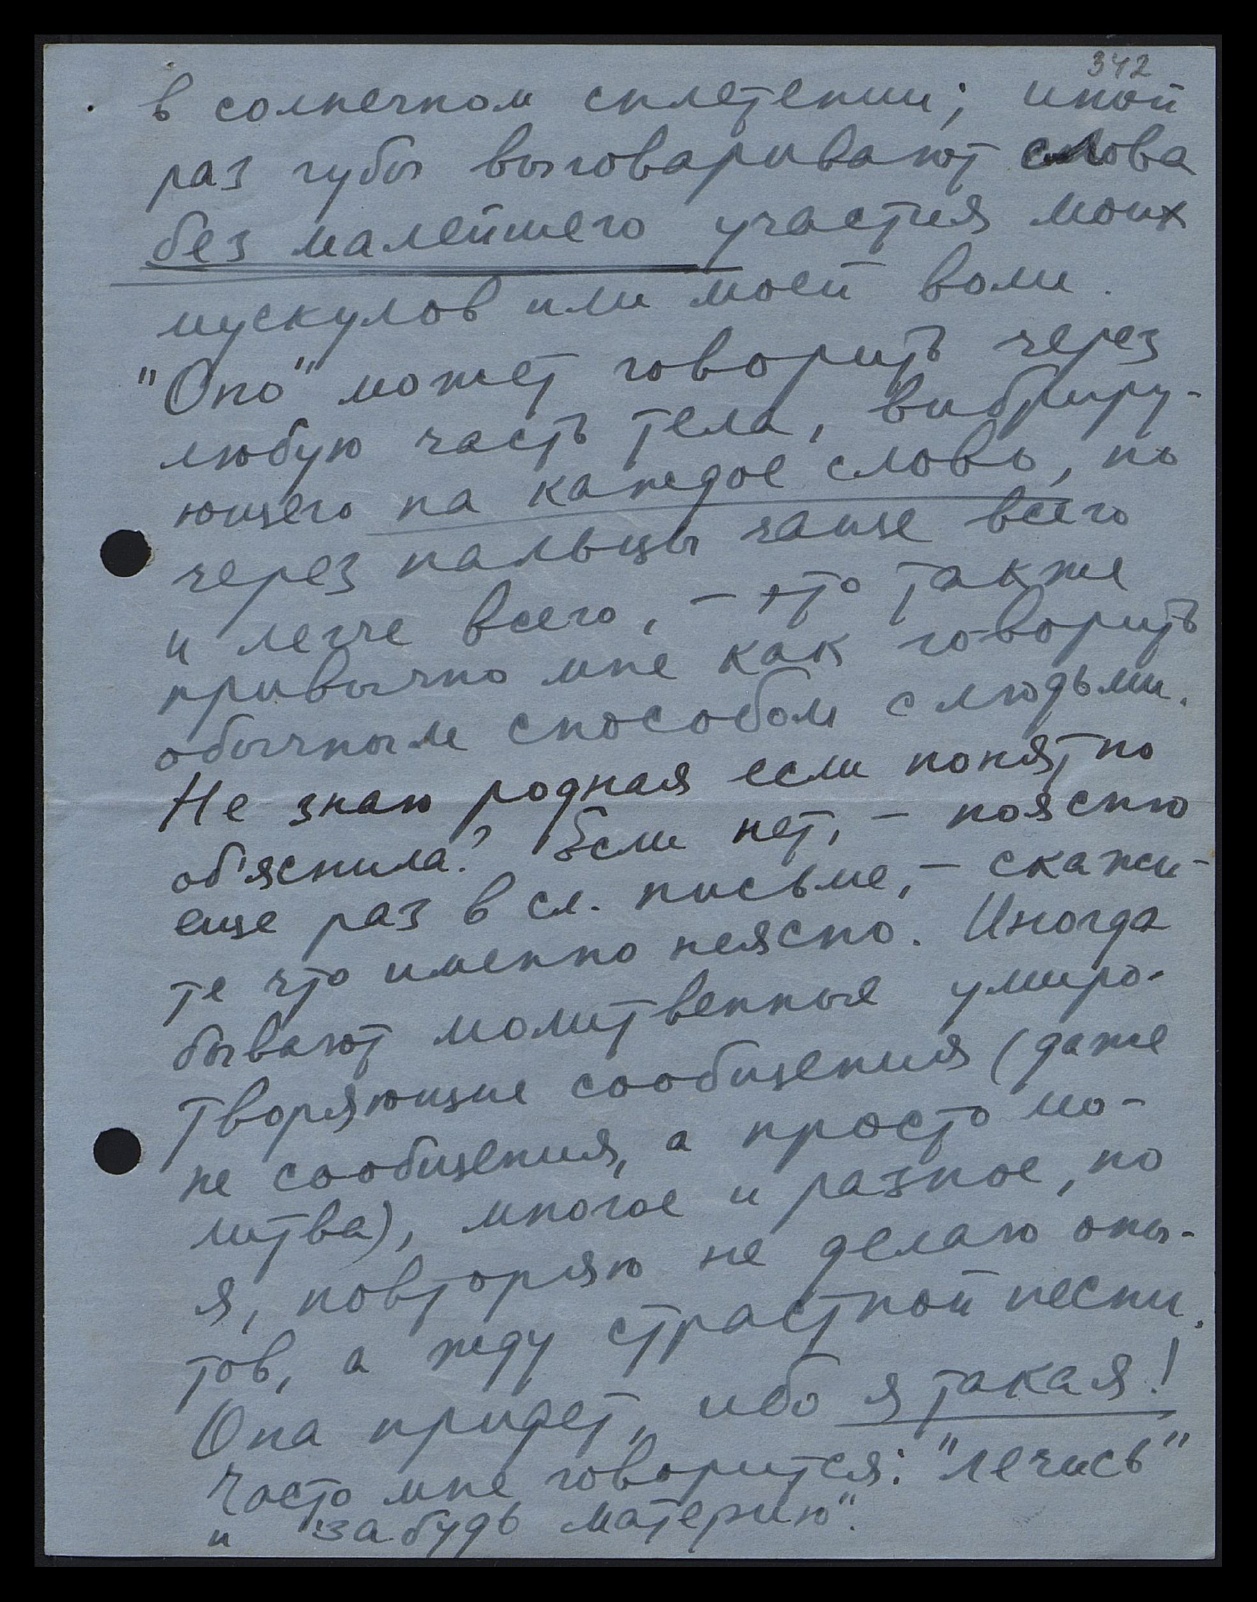 342
в солнечном сплетении; иной
раз губы выговаривают слова
без малейшего участия моих
мускулов или моей воли.
"Оно" может говорить через
любую часть тела, вибриру-
ющего на каждое слово, но
через пальцы чаще всего
и легче всего, – это также
привычно мне как говорить
обычным способом с людьми.
Не знаю родная если понятно
об'яснила? Если нет, – поясню
еще раз в сл. письме, – скажи-
те что именно неясно. Иногда
бывают молитвенные умиро-
творяющие сообщения (даже
не сообщения, а просто мо-
литва), многое и разное, но
я, повторяю не делаю опы-
тов, а жду страстной песни.
Она придет, ибо я такая!
Часто мне говорится: "лечись"
и "забудь материю".